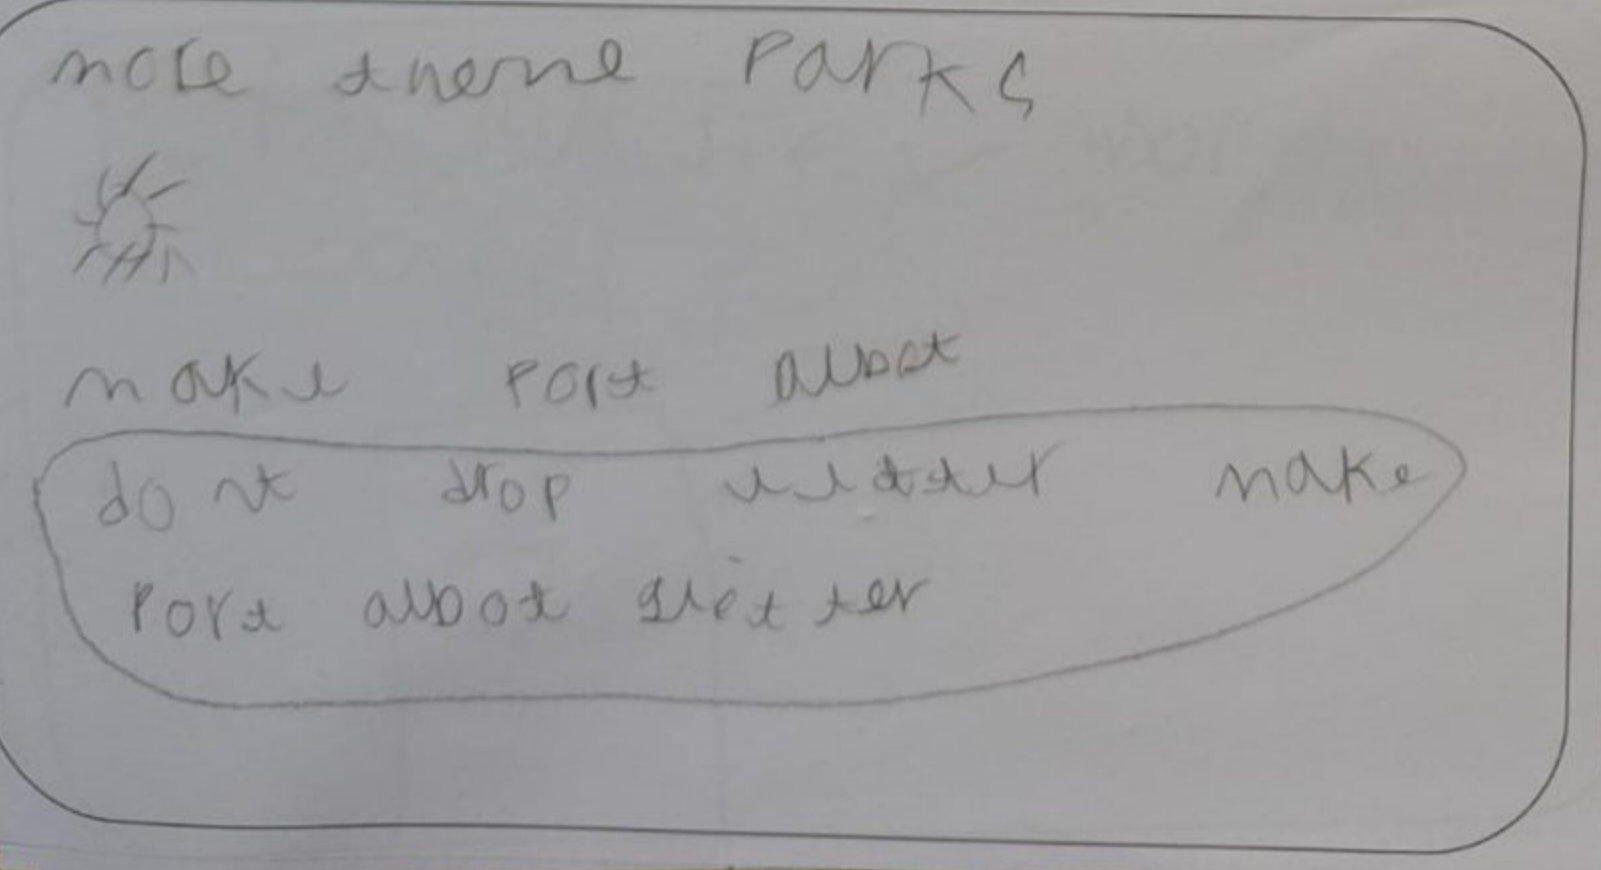 more theme Parks
make Port albot
dont drop litter make
Port albot glitter